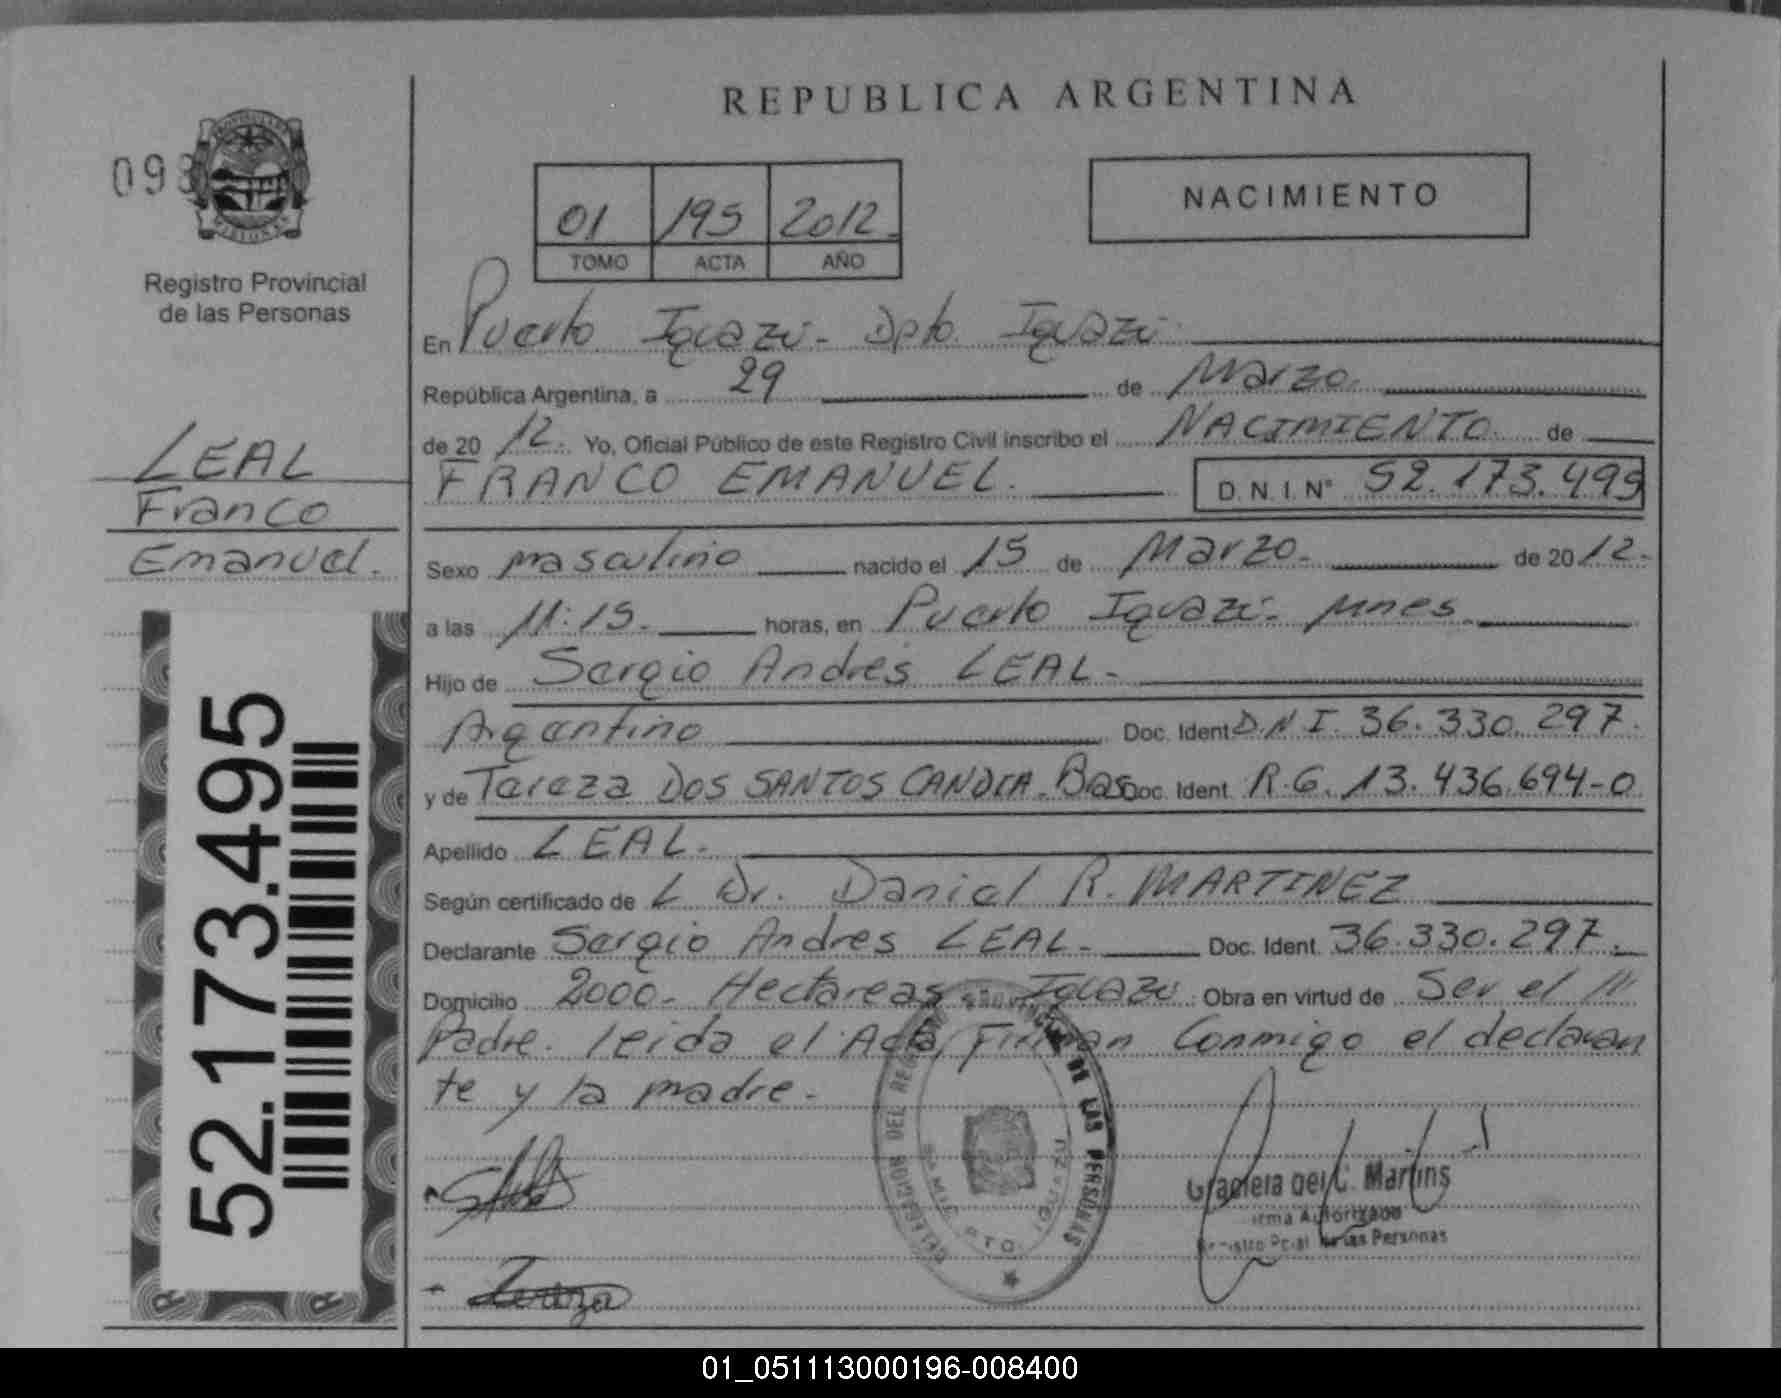 REPUBLICA ARGENTINA
093
01 195 2012
TOMO ACTA AÑO
NACIMIENTO
Registro Provincial
de las Personas
LEAL
Franco
Emanuel.
52.173.495
En Puerto Iguazú - Dpto. Iguazú
República Argentina, a 29 de Marzo.
de 20 12. Yo, Oficial Público de este Registro Civil inscribo el NACIMIENTO de
FRANCO EMANUEL. D. N. I. N° 52.173.495
Sexo masculino nacido el 15 de Marzo. de 20 12.
a las 11:15. horas, en Puerto Iguazú - Mnes.
Hijo de Sergio Andres LEAL -
Argentino Doc. Ident D.N.I. 36.330.297.
y de Tereza DOS SANTOS CANDIA - Bras Doc. Ident. R.G. 13.436.694-0
Apellido LEAL.
Según certificado de L Dr. Daniel R. MARTINEZ
Declarante Sergio Andres LEAL - Doc. Ident. 36.330.297.
Domicilio 2000 - Hectareas - Iguazú Obra en virtud de Ser el
Padre. leida el Acta, Firman Conmigo el declaran
te y la madre.
DELEGACION DEL REGISTRO PROVINCIAL DE LAS PERSONAS
SAMIC PTO. IGUAZU
Graciela del C. Martins
Firma Autorizada
Registro Pcial de las Personas
Tereza
01_051113000196-008400